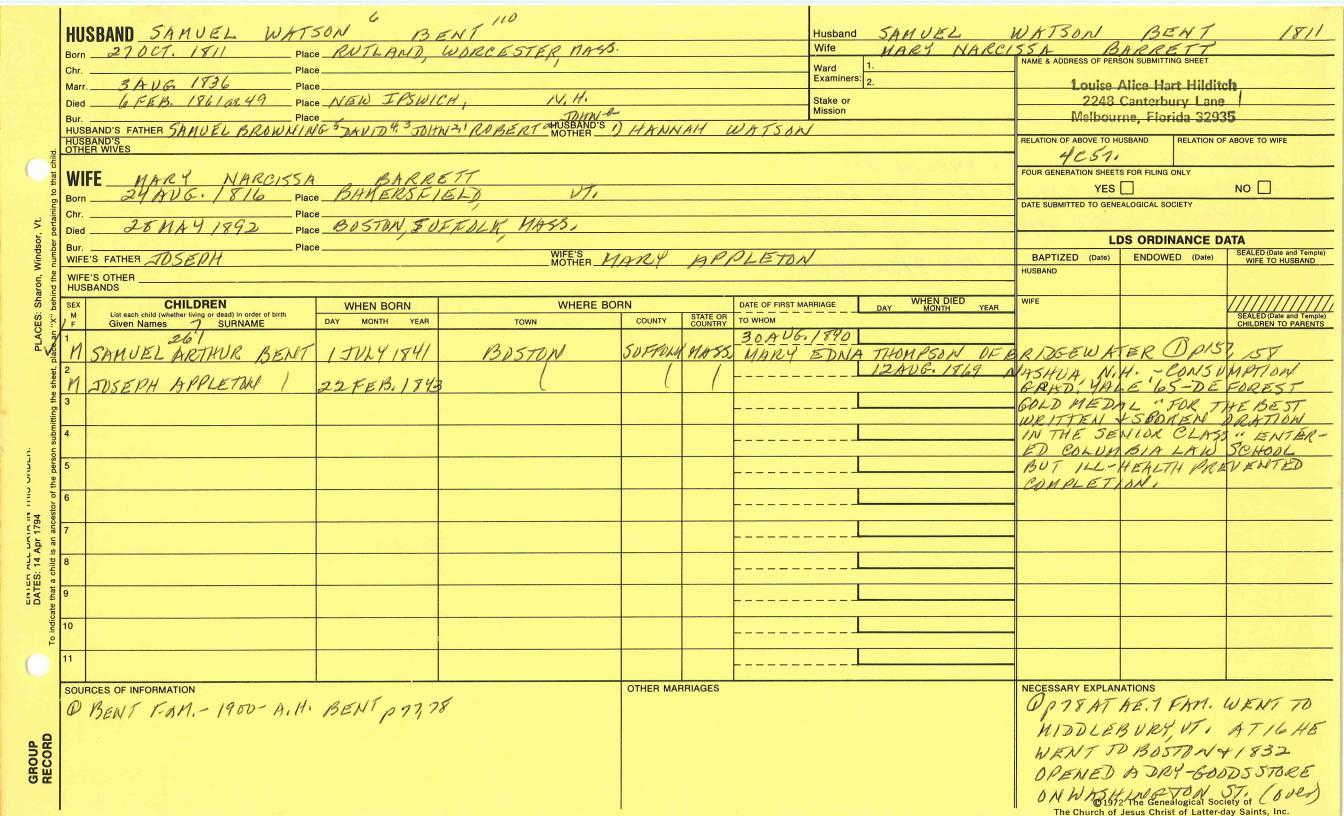 6 110
HUSBAND SAMUEL WATSON BENT
Born 27 OCT. 1811 Place RUTLAND, WORCESTER, MASS.
Chr. Place
Marr. 3 AUG. 1836 Place
Died 6 FEB. 1861 or 49 Place NEW IPSWICH, N.H.
Bur. Place JOHN
HUSBAND'S FATHER SAMUEL BROWNING 5 DAVID 4, 3 JOHN 2, 1 ROBERT HUSBAND'S MOTHER 1) HANNAH WATSON
HUSBAND'S OTHER WIVES
WIFE MARY NARCISSA BARRETT
Born 24 AUG. 1816 Place BAKERSFIELD, VT.
Chr. Place
Died 28 MAY 1892 Place BOSTON, SUFFOLK, MASS.
Bur. Place
WIFE'S FATHER JOSEPH WIFE'S MOTHER MARY APPLETON
WIFE'S OTHER HUSBANDS
Husband SAMUEL WATSON BENT 1811
Wife MARY NARCISSA BARRETT
Ward Examiners: 1.
2.
Stake or Mission
NAME & ADDRESS OF PERSON SUBMITTING SHEET
Louise Alice Hart Hilditch
2248 Canterbury Lane
Melbourne, Florida 32935
RELATION OF ABOVE TO HUSBAND RELATION OF ABOVE TO WIFE
4C5r.
FOUR GENERATION SHEETS FOR FILING ONLY
YES NO
DATE SUBMITTED TO GENEALOGICAL SOCIETY
LDS ORDINANCE DATA
BAPTIZED (Date) ENDOWED (Date) SEALED (Date and Temple) WIFE TO HUSBAND
HUSBAND
WIFE
SEALED (Date and Temple) CHILDREN TO PARENTS
SEX M F
CHILDREN
List each child (whether living or dead) in order of birth
Given Names 7 SURNAME
WHEN BORN
DAY MONTH YEAR
WHERE BORN
TOWN COUNTY STATE OR COUNTRY
DATE OF FIRST MARRIAGE
TO WHOM
WHEN DIED
DAY MONTH YEAR
1 267 30 AUG. 1890
M SAMUEL ARTHUR BENT 1 JULY 1841 BOSTON SUFFOLK MASS. MARY EDNA THOMPSON OF BRIDGEWATER ① p157, 158
2 12 AUG. 1869 NASHUA, N.H. - CONSUMPTION
M JOSEPH APPLETON 22 FEB. 1843 GRAD. YALE '65 - DE FOREST
3 GOLD MEDAL "FOR THE BEST
WRITTEN & SPOKEN ORATION
4 IN THE SENIOR CLASS" ENTER-
ED COLUMBIA LAW SCHOOL
5 BUT ILL-HEALTH PREVENTED
COMPLETION.
6
7
8
9
10
11
SOURCES OF INFORMATION
① BENT FAM. - 1900 - A.H. BENT p 77, 78
OTHER MARRIAGES
NECESSARY EXPLANATIONS
① p78 AT AE. 7 FAM. WENT TO
MIDDLEBURY, VT. AT 16 HE
WENT TO BOSTON & 1832
OPENED A DRY-GOODS STORE
ON WASHINGTON ST. (over)
©1972 The Genealogical Society of
The Church of Jesus Christ of Latter-day Saints, Inc.
PLACES: Sharon, Windsor, Vt.
ENTER ALL DATA IN THIS ORDER:
DATES: 14 Apr 1794
To indicate that a child is an ancestor of the person submitting the sheet, place an "X" behind the number pertaining to that child.
GROUP RECORD